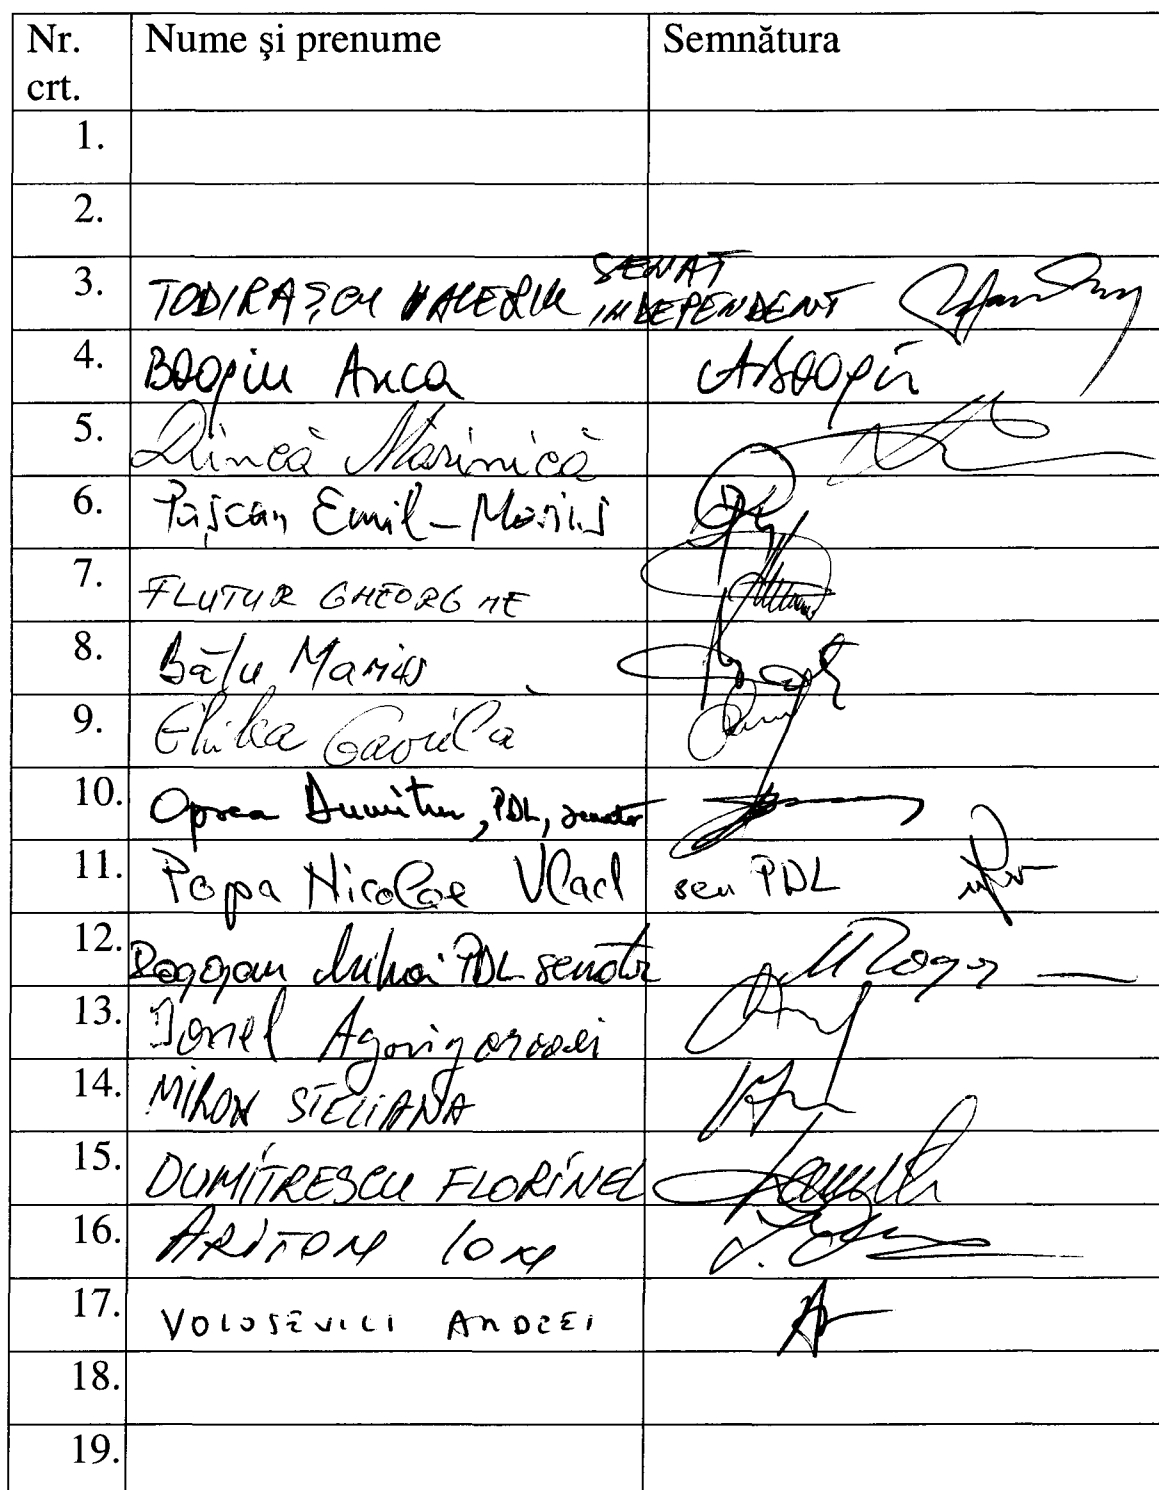 Nr. crt. Nume şi prenume Semnătura
1.
2.
3. TODIRAŞCU VALERIU SENAT INDEPENDENT
4. Boagiu Anca ABoagiu
5. Dincă Marinică
6. Paşcan Emil-Marius
7. FLUTUR GHEORGHE
8. Bâlu Marius
9. Ghilea Gavrilă
10. Oprea Dumitru, PDL, senator
11. Popa Nicolae Vlad sen PDL
12. Rogojan Mihai PDL senator
13. Ionel Agorigoroaei
14. MIRON STELIANA
15. DUMITRESCU FLORINEL
16. ARITON ION
17. VOLOSEVICI ANDREI
18.
19.